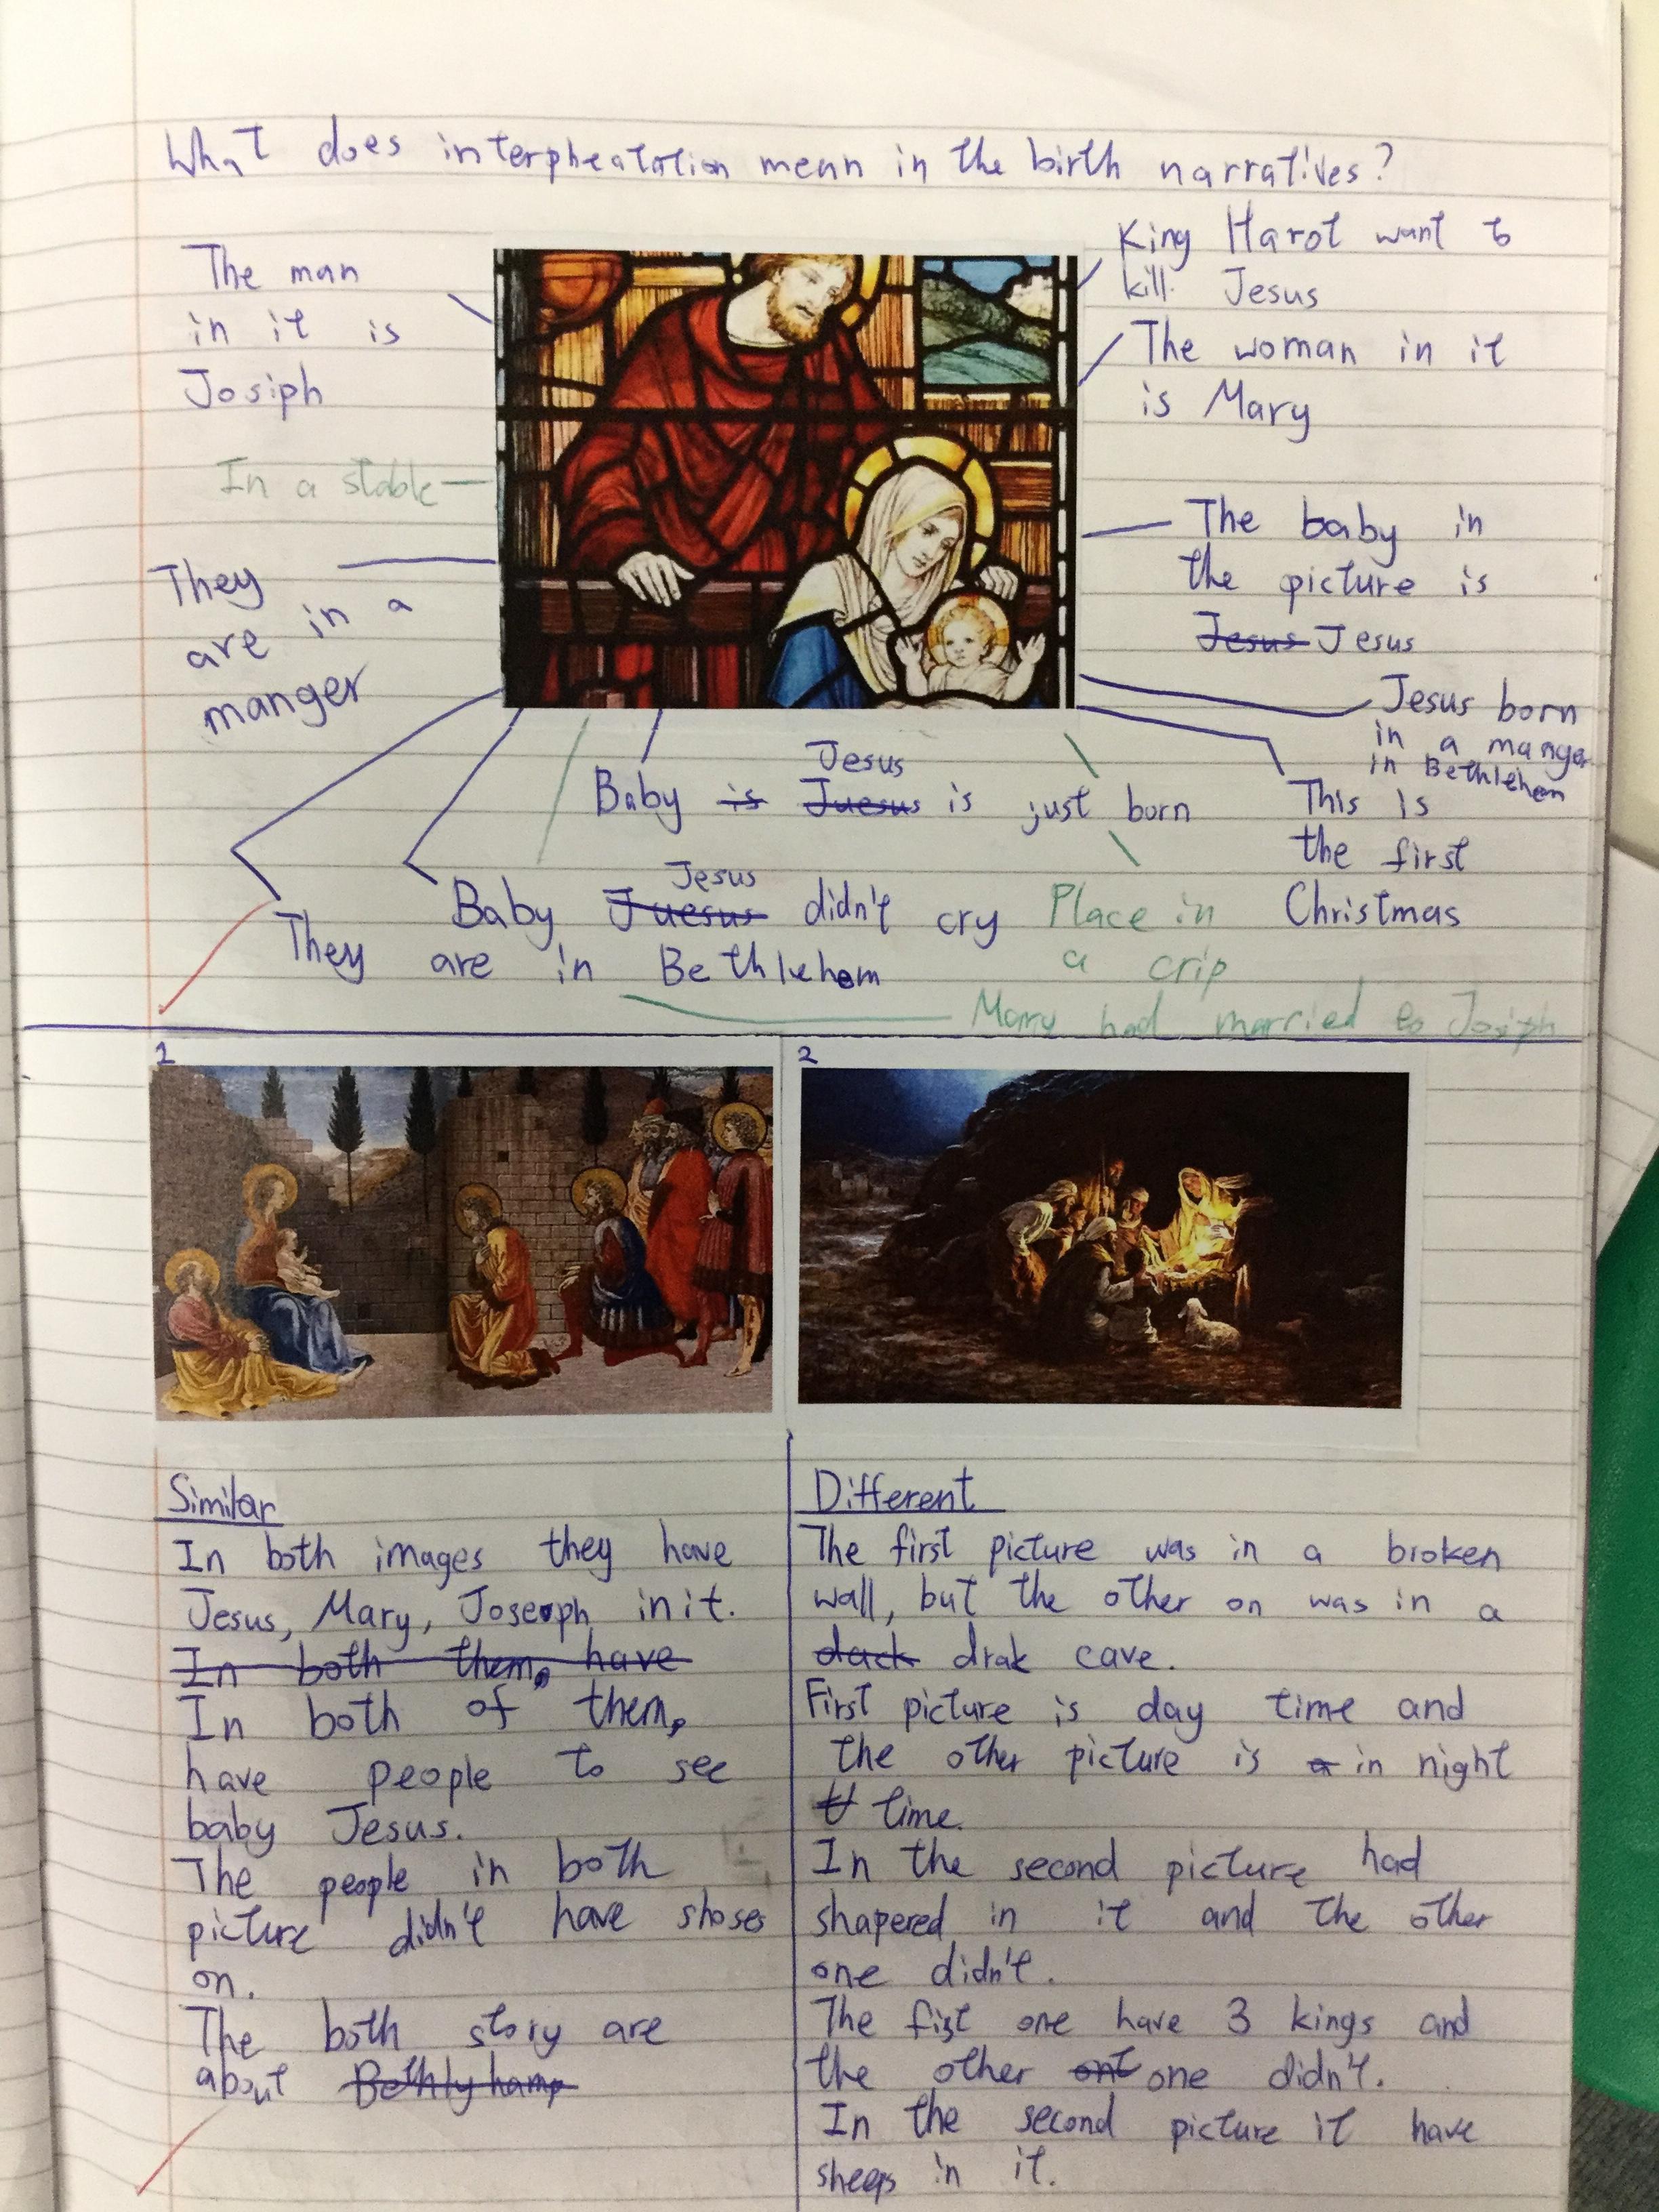 What does interpheatation mean in the birth narratives?
The man
in it is
Josiph
In a stable
They
are in a
manger
King Harot want to
kill Jesus
The woman in it
is Mary
The baby in
the picture is
Jesus Jesus
Jesus born
in a manger
in Bethlehem
This is
the first
Christmas
Jesus
Baby is Juesus is just born
Jesus
Baby Juesus didn't cry
They are in Bethlehem
Place in
a crip
Marry had married to Josiph
1
2
Similar
In both images they have
Jesus, Mary, Joseph in it.
In both them, have
In both of them,
have people to see
baby Jesus.
The people in both
picture didn't have shoses
on.
The both story are
about Bethly hamp
Different
The first picture was in a broken
wall, but the other on was in a
dack drak cave.
First picture is day time and
the other picture is a in night
t time.
In the second picture had
shapered in it and the other
one didn't.
The fist one have 3 kings and
the other ont one didn't.
In the second picture it have
sheeps in it.